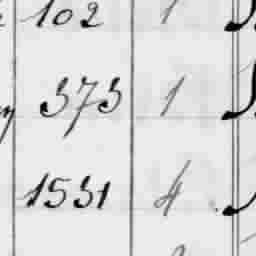 102 1
373 1
1531 4